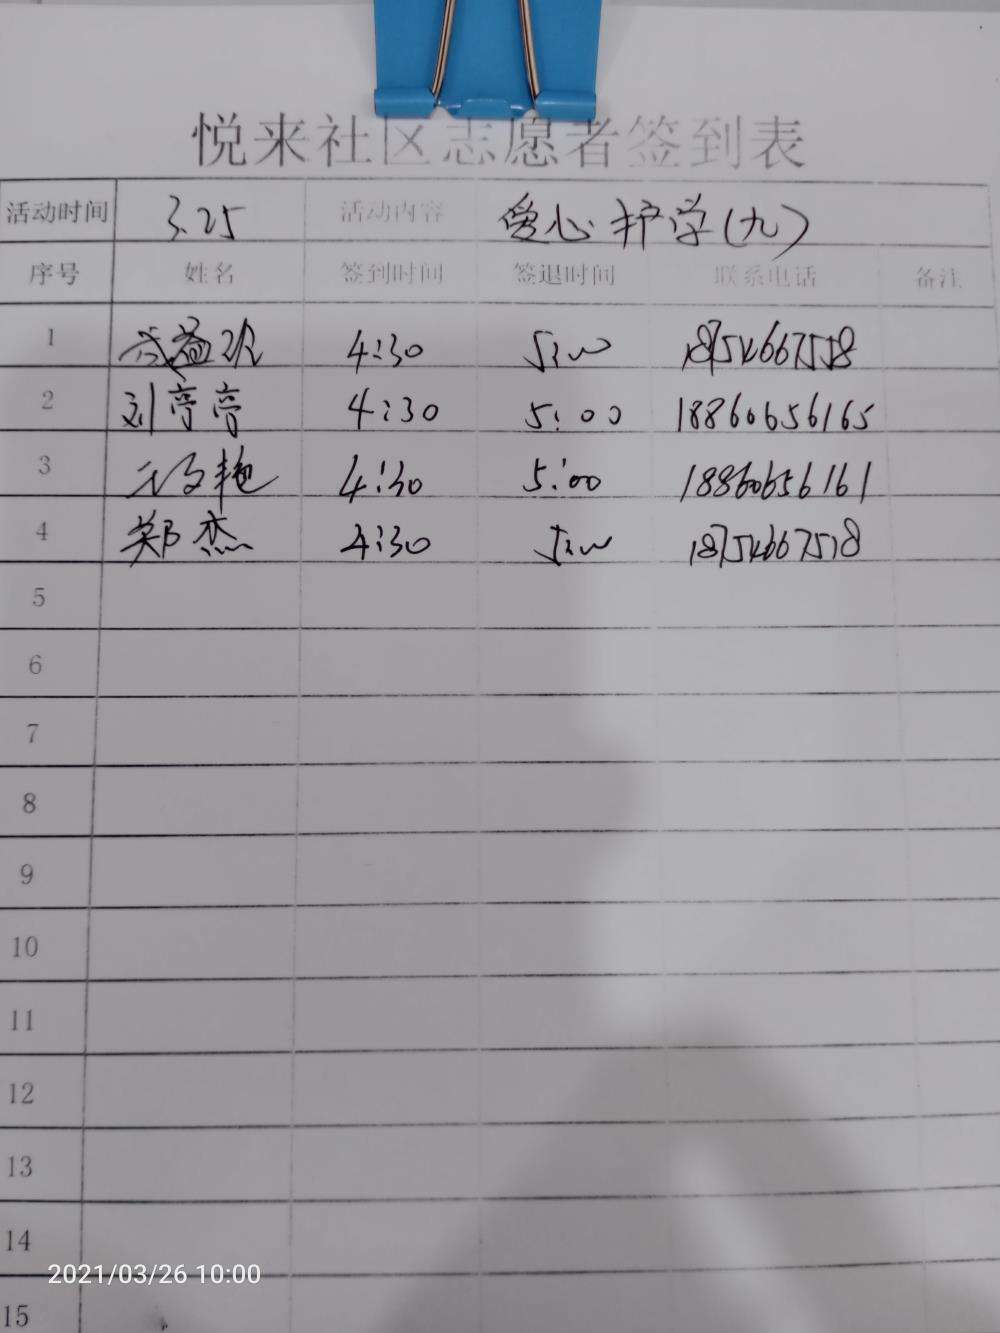 悦来社区志愿者签到表
活动时间 3.25 活动内容 爱心护学(九)
序号 姓名 签到时间 签退时间 联系电话 备注
1 4:30 5:00 18754667558
2 刘亭亭 4:30 5:00 18860656165
3 艳 4:30 5:00 18860656161
4 郑杰 4:30 5:00 18754667518
5
6
7
8
9
10
11
12
13
14
15
2021/03/26 10:00